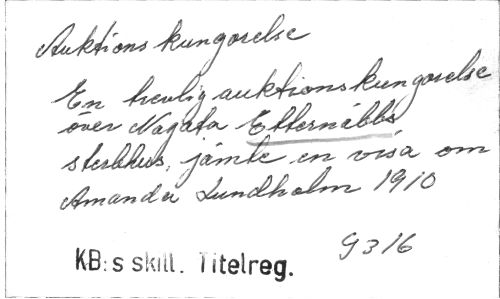 Auktionskungorelse
En trevlig auktionskungorelse
över Nagata Etternäbbs
sterbhus, jämte en visa om
Amanda Lundholm 1910
KB:s skill. Titelreg.
9316